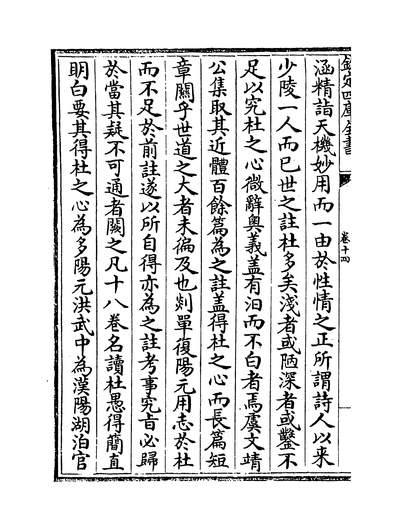 欽定四庫全書
卷十四
涵精詣天機妙用而一由於性情之正所謂詩人以来
少陵一人而已世之註杜多矣淺者或陋深者或鑿不
足以究杜之心微辭奥義盖有汩而不白者焉虞文靖
公集取其近體百餘篇為之註盖得杜之心而長篇短
章關乎世道之大者未徧及也剡單復陽元用志於杜
而不足於前註遂以所自得亦為之註考事究㫖必歸
於當其疑不可通者闕之凡十八卷名讀杜愚得簡直
明白要其得杜之心為多陽元洪武中為漢陽湖泊官